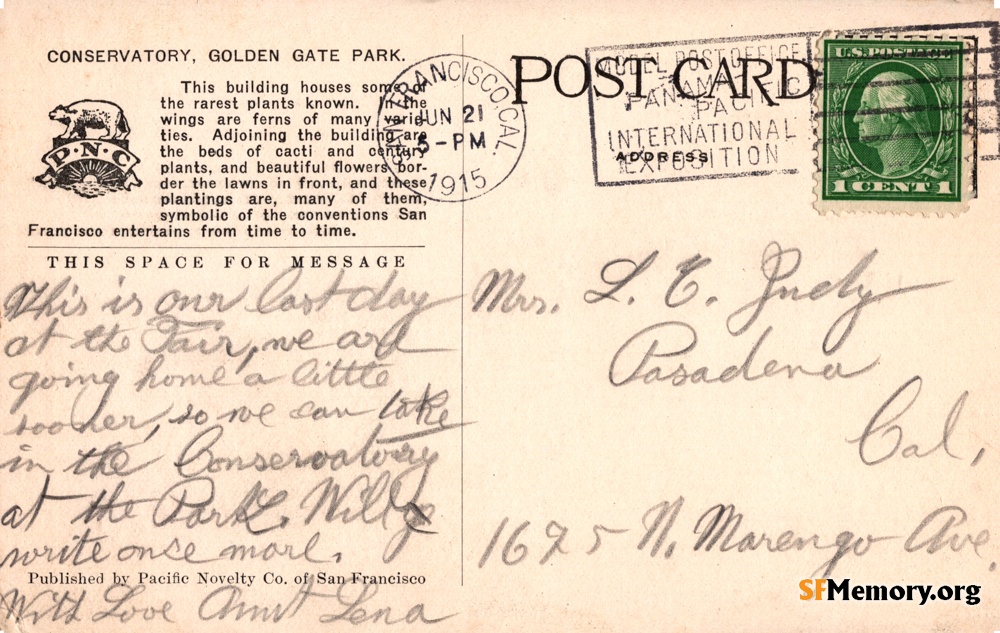 CONSERVATORY, GOLDEN GATE PARK.
This building houses some of
the rarest plants known. In the
wings are ferns of many varie-
ties. Adjoining the building are
the beds of cacti and century
plants, and beautiful flowers bor-
der the lawns in front, and these
plantings are, many of them,
symbolic of the conventions San
Francisco entertains from time to time.
P·N·C
THIS SPACE FOR MESSAGE
This is our last day
at the Fair, we are
going home a little
sooner, so we can take
in the Conservatory
at the Park. Will
write once more.
Published by Pacific Novelty Co. of San Francisco
With Love Aunt Lena
SAN FRANCISCO, CAL.
JUN 21
5-PM
1915
POST CARD
ADDRESS
MODEL POST OFFICE
PANAMA
PACIFIC
INTERNATIONAL
EXPOSITION
U.S. POSTAGE
1 CENT 1
Mrs. L. E. Judy
Pasadena
Cal,
1675 N. Marengo Ave.
SFMemory.org